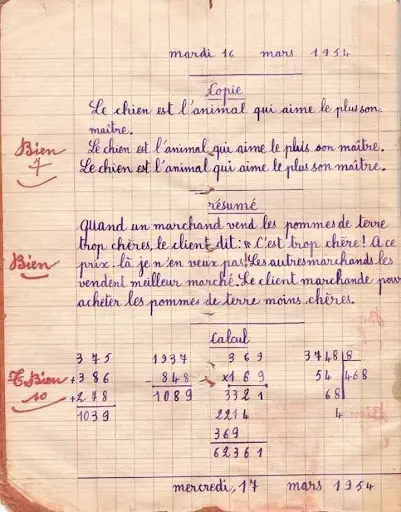 mardi 16 mars 1954
Copie
Le chien est l'animal qui aime le plus son
maître.
Le chien est l'animal qui aime le plus son maître.
Bien
7
Le chien est l'animal qui aime le plus son maître.
résumé
Quand un marchand vend les pommes de terre
trop chères, le client dit: « C'est trop chère! A ce
prix-là je n'en veux pas! Les autres marchands les
Bien
vendent meilleur marché. Le client marchande pour
acheter les pommes de terre moins chères.
Calcul
375 1937 369 3748 8
T. Bien +386 - 848 ×169 54 468
10 +278 1089 3321 68
1039 2214 4
369
62361
mercredi, 17 mars 1954